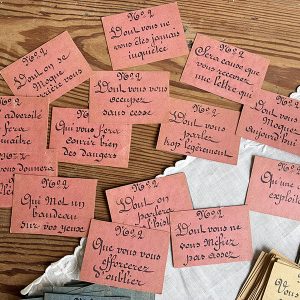 No. 2
Dont vous ne
vous êtes jamais
inquiétée
No. 2
Dont on se
Moque
No. 2
Sera cause que
vous recevrez
une lettre que
No. 2
Dont vous vous
occupez
sans cesse
No. 2
Dont vous
parlez
trop légèrement
No. 2
Dont vous
Moquez
aujourd'hui
adversité
fera
Qui vous fera
courir bien
des dangers
No. 2
Qui Met un
bandeau
sur vos yeux
No. 2
Dont on
parlera
No. 2
Dont vous ne
vous Méfiez
pas assez
No. 2
Que vous vous
efforcerez
d'oublier
No. 2
Qu'une
exploite